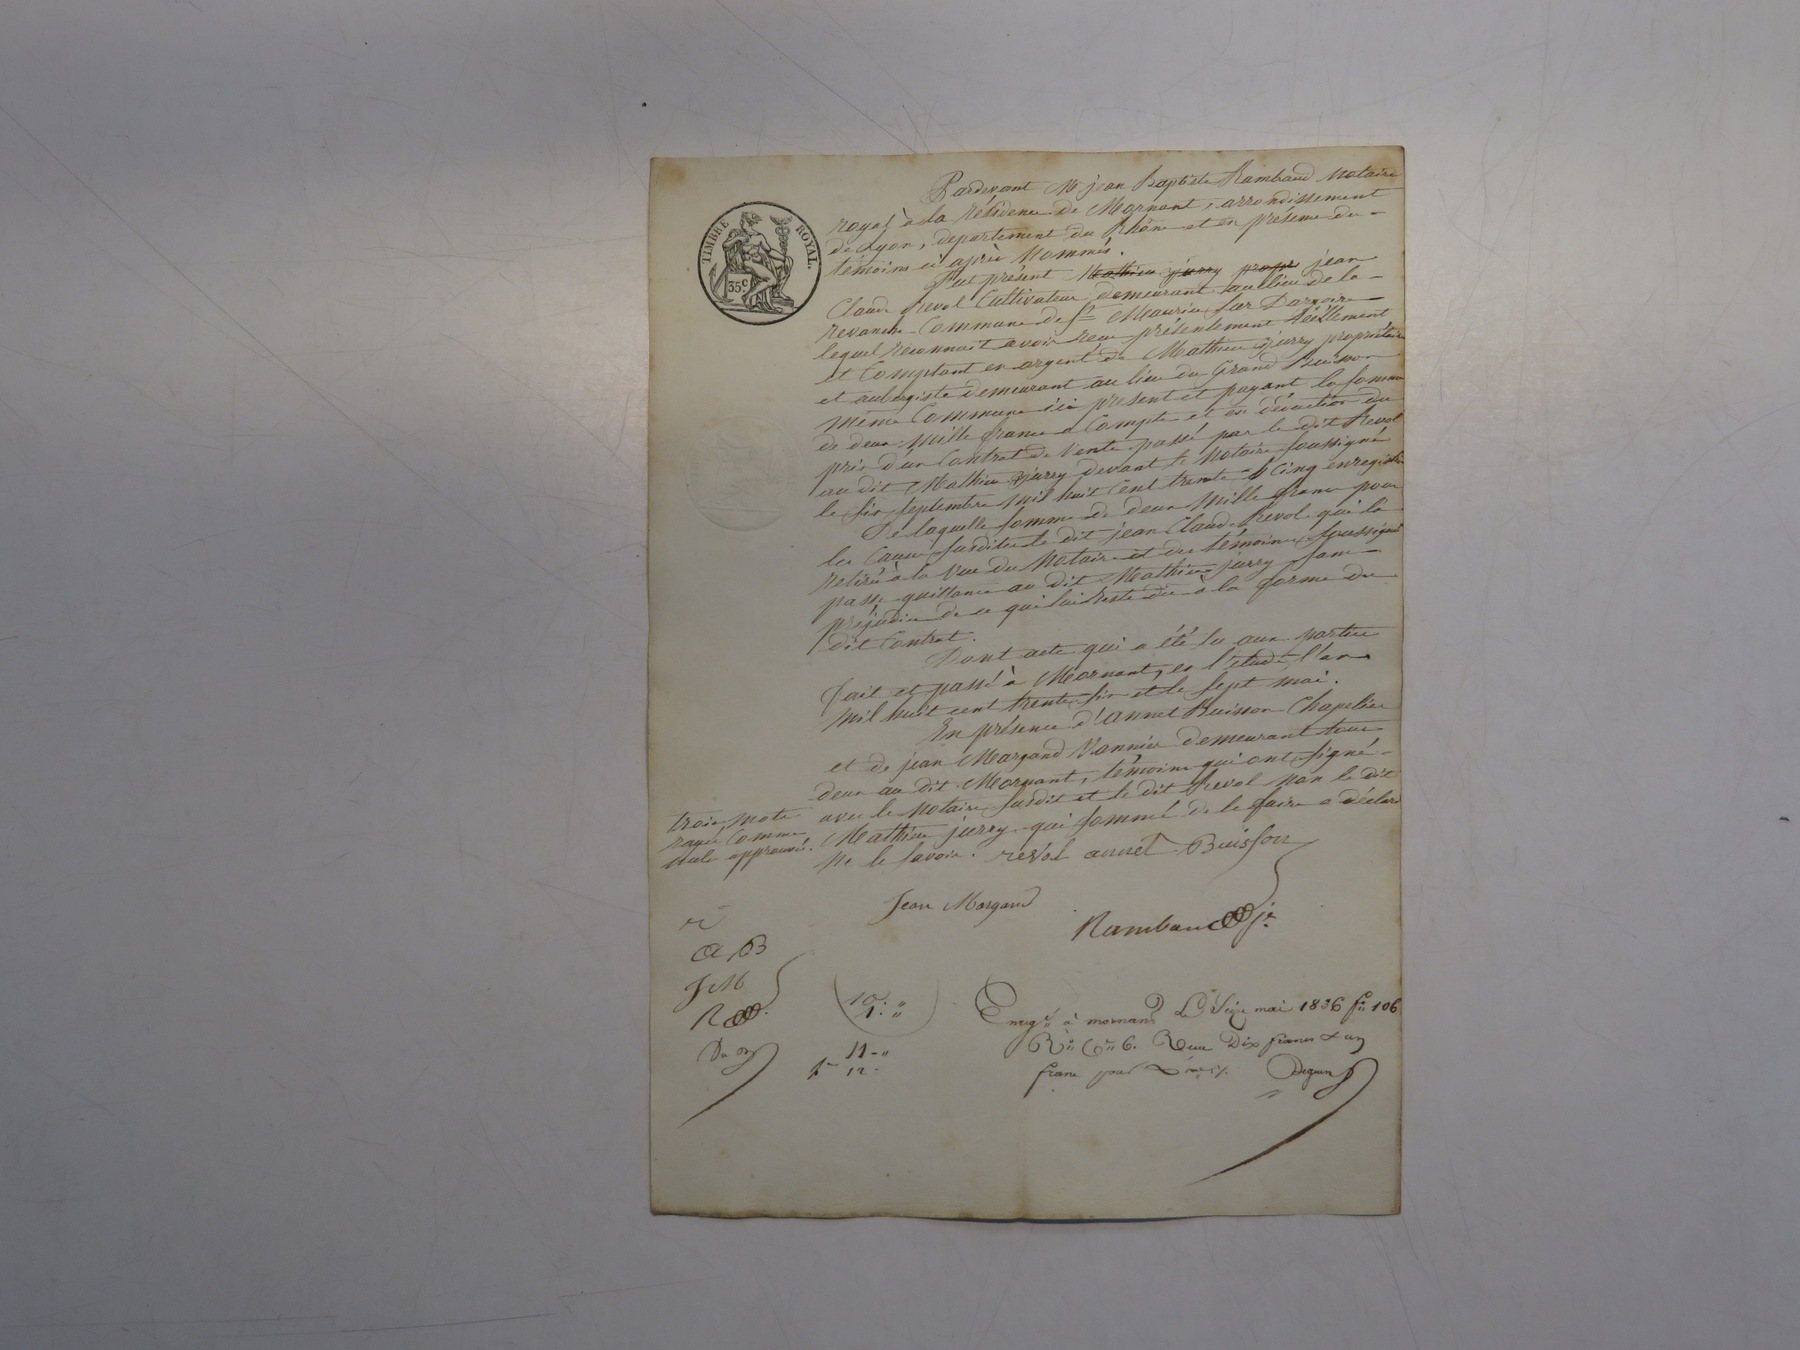 TIMBRE ROYAL.
35c
Pardevant Me jean Baptiste Rambaud Notaire
royal à la résidence de Mornant, arrondissement
de Lyon, departement du Rhône et en présence des
témoins ci après Nommés.
Fut présent Mathieu jurry propr jean
Claude Revol Cultivateur demeurant au lieu de la
revanche Commune de St Maurice sur Dargoire
lequel reconnait avoir reçu présentement réellement
et Comptant en argent de Mathieu jurry propriétaire
et aubergiste demeurant au lieu du Grand Buisson
même Commune ici present et payant la somme
de deux mille francs a Compte et en déduction du
prix d'un Contrat de Vente passé par le dit Revol
au dit Mathieu jurry devant le Notaire soussigné
le six septembre mil huit cent trente Cinq enregistré
De laquelle somme de deux mille francs pour
les Causes susdites le dit jean Claude Revol qui l'a
retiré à la vue du Notaire et des témoins soussignés
passe quittance au dit Mathieu jurry sans
préjudice de ce qui lui reste dû à la forme du
dit Contrat.
Dont acte qui a été lu aux parties
fait et passé à Mornant, en l'etude, l'an
mil huit cent trente six et le sept mai.
En présence d'annet Buisson Chapelier
et de jean Margand Vannier demeurant tous
deux au dit Mornant, témoins qui ont signé
avec le Notaire susdit et le dit Revol non le dit
Mathieu jurry qui sommé de le faire a déclaré
ne le savoir. revol annet Buisson
trois mots
rayés Comme
nuls approuvés.
Jean Margand
Rambaud je
A B
J M
R
10 "
1 "
11 - "
12 -
Enregré à mornant Le Seize mai 1836 fo 106
Ro Ce 6. Reçu Dix francs & un
franc pour Dme Deguin